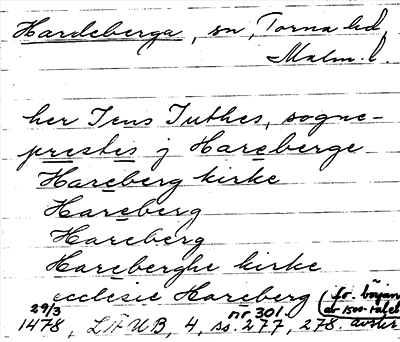 Hardeberga, sn, Torna hd,
Malm. l.
her Jens Juthes, sogne-
prestes j Hareberge
Hareberg kirke
Hareberg
Hareberg
Hareberghe kirke
ecclesie Hareberg (fr. början
29/3 nr 301. av 1500-talet
1478, LÄUB, 4, ss. 277, 278. avskr.